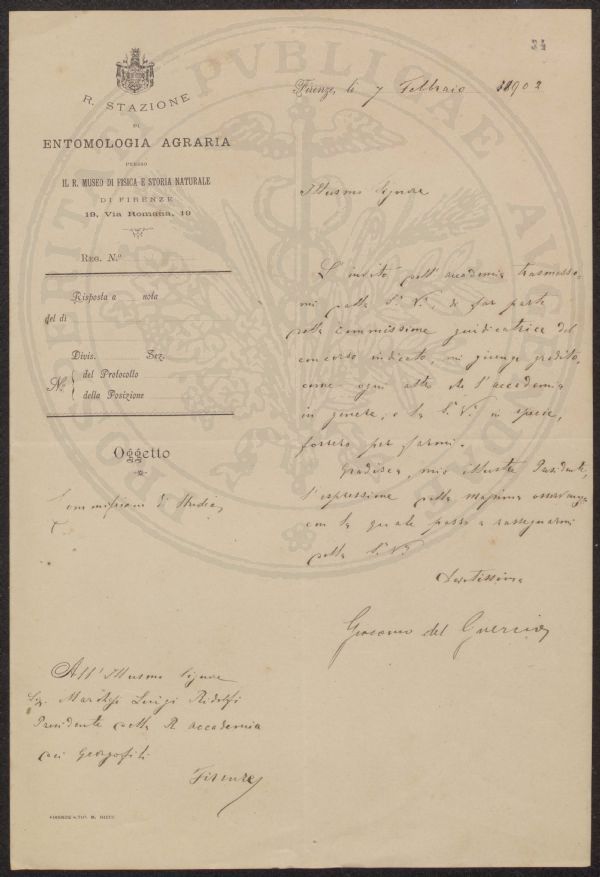 R. STAZIONE
DI
ENTOMOLOGIA AGRARIA
PRESSO
IL R. MUSEO DI FISICA E STORIA NATURALE
DI FIRENZE
19, Via Romana, 19
Reg. N.º
Risposta a nota
del di
Divis. Sez.
N.º del Protocollo
della Posizione
Oggetto
Commissione di
Firenze, li 7 Febbraio 1902
Illusmo Signore
L'invito dell'accademia trasmesso-
mi dalla S. V. di far parte
della commissione giudicatrice del
concorso indicato, mi giunge gradito,
come ogni atto che l'accademia
in genere, e la S. V. in specie,
fossero per farmi.
Gradisca, mio Illustre Presidente,
l'espressione della massima osservanza
con la quale passo a rassegnarmi
della S. V.
Devotissimo
Giacomo del Guercio
All'Illusmo Signore
Sig. Marchese Luigi Ridolfi
Presidente della R accademia
dei Georgofili
Firenze